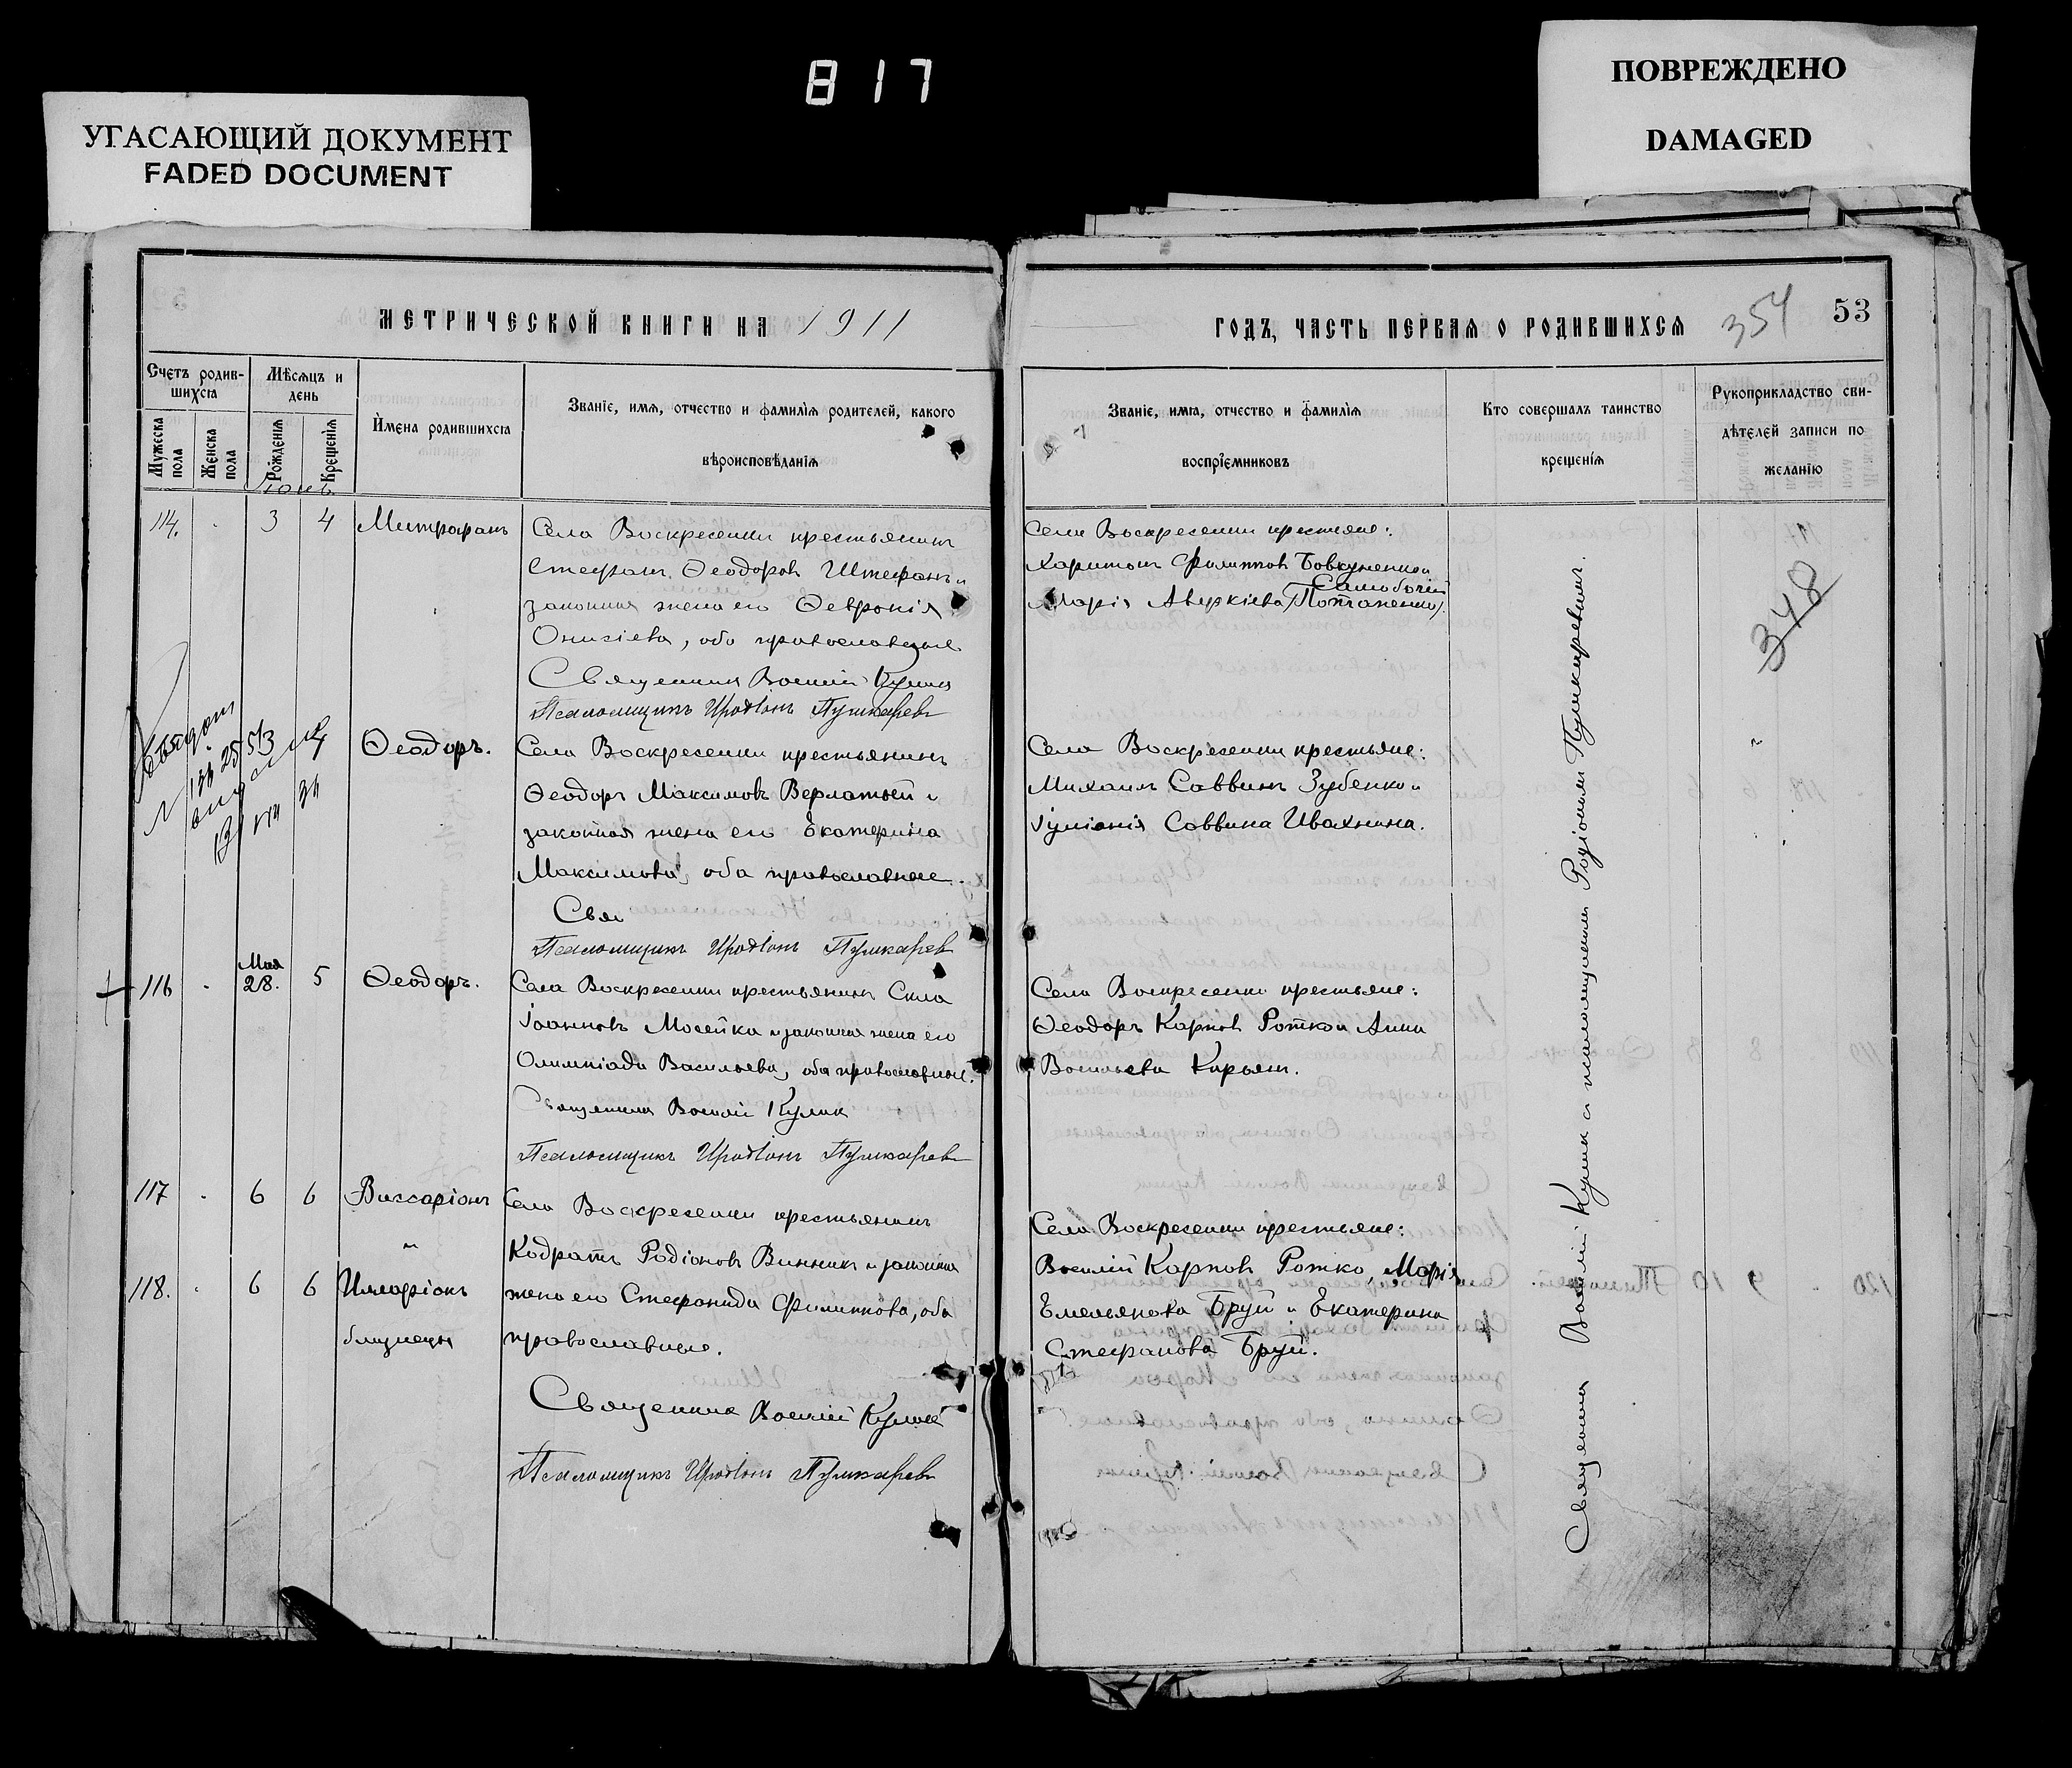 817
УГАСАЮЩИЙ ДОКУМЕНТ
FADED DOCUMENT
ПОВРЕЖДЕНО
DAMAGED
МЕТРИЧЕСКОЙ КНИГИ НА 1911
Счетъ родив-
шихся
Мѣсяцъ и
день
Мужеска
пола
Женска
пола
Рожденія
Крещенія
Имена родившихся
Званіе, имя, отчество и фамилія родителей, какого
вѣроисповѣданія
Іюнь
114. 3 4 Митрофанъ
Села Воскресенки крестьянинъ
Стефанъ Ѳеодоровъ Штефанъ и
законная жена его Ѳевронія
Онисіева, оба православные
Священникъ Василій Кулик
Псаломщикъ Иродіонъ Пушкаревъ
3 4 Ѳеодоръ.
Села Воскресенки крестьянинъ
Ѳеодоръ Максимовъ Верлатый и
законная жена его Екатерина
Максимова, оба православные.
Свя
Псаломщикъ Иродіонъ Пушкаревъ
116 Мая 28. 5 Ѳеодоръ.
Села Воскресенки крестьянинъ Сила
Іоанновъ Мосейка и законная жена его
Олимпіада Васильева, оба православные.
Священникъ Василій Кулик
Псаломщикъ Иродіонъ Пушкаревъ
117 6 6 Виссаріонъ
118. 6 6 Иларіонъ
близнецы
Села Воскресенки крестьянинъ
Кодратъ Родіоновъ Винникъ и законная
жена его Стефанида Филиппова, оба
православные.
Священникъ Василій Кулик
Псаломщикъ Иродіонъ Пушкаревъ
ГОДЪ, ЧАСТЬ ПЕРВАЯ О РОДИВШИХСЯ
354
53
Званіе, имя, отчество и фамилія
воспріемниковъ
Кто совершалъ таинство
крещенія
Рукоприкладство сви-
дѣтелей записи по
желанію
Села Воскресенки крестьяне:
Харитонъ Филипповъ Бовкуненко и
Марія Аверкіева (Потапенко).
348
Села Воскресенки крестьяне:
Михаилъ Саввинъ Зубенко и
Іуліанія Саввина Ивахнина.
Села Воскресенки крестьяне:
Ѳеодоръ Карповъ Ротко и Анна
Васильева Кирьян.
Села Воскресенки крестьяне:
Василій Карповъ Ротко, Марія
Емельянова Бруй и Екатерина
Стефанова Бруй.
Священникъ Василій Кулик и псаломщикъ Родіонъ Пушкаревъ.